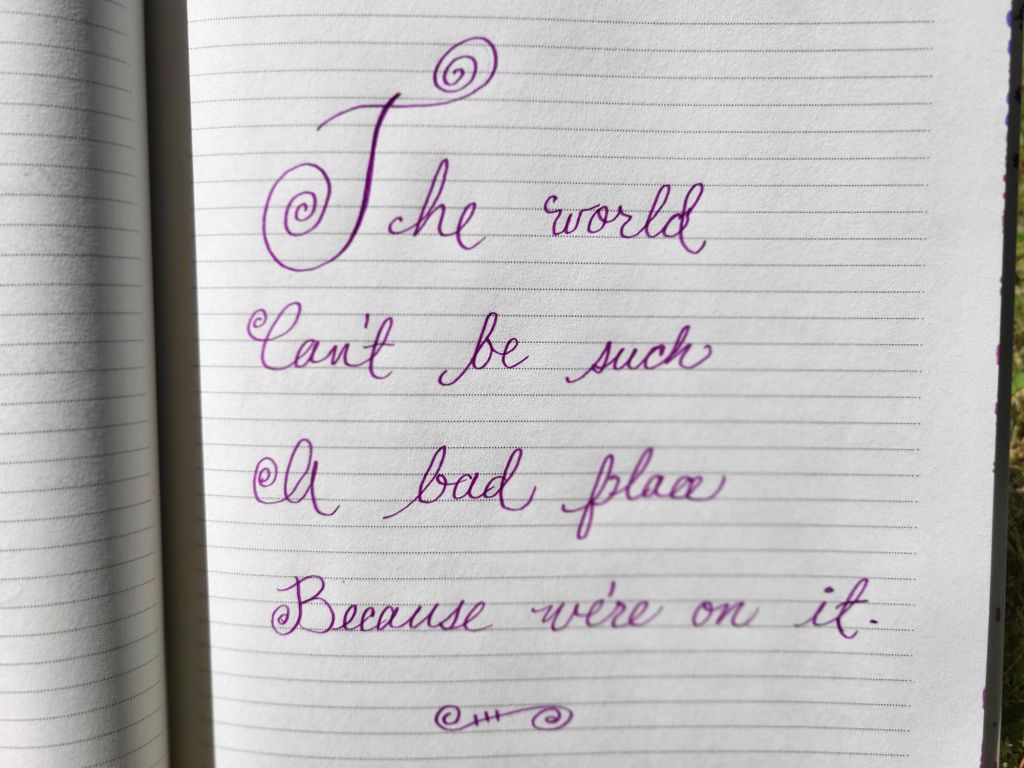 The world
Can't be such
A bad place
Because we're on it.